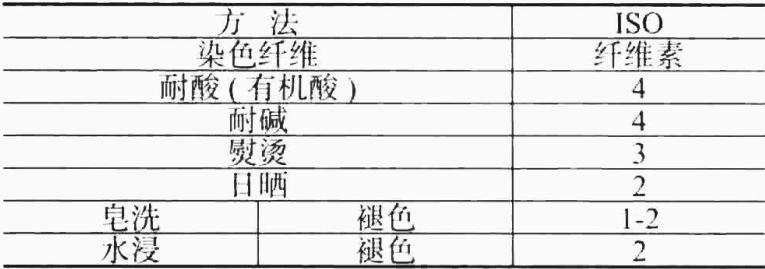 方 法 ISO
染色纤维 纤维素
耐酸(有机酸) 4
耐碱 4
熨烫 3
日晒 2
皂洗 褪色 1-2
水浸 褪色 2